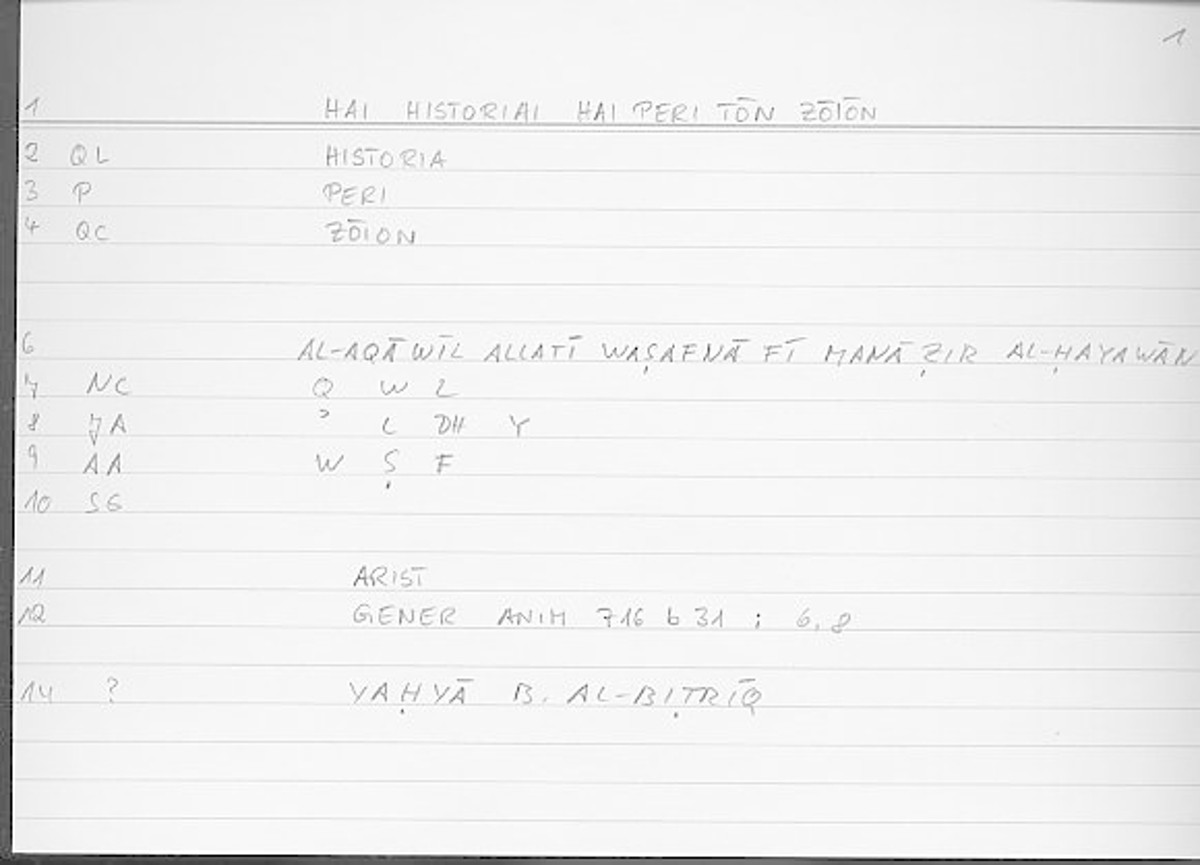 1
1 HAI HISTORIAI HAI PERI TŌN ZŌIŌN
2 QL HISTORIA
3 P PERI
4 QC ZŌION
6 AL-AQĀWĪL ALLATĪ WAṢAFNĀ FĪ MANĀẒIR AL-ḤAYAWĀN
7 NC Q W L
8 JA ʾ L DH Y
9 AA W Ṣ F
10 SG
11 ARIST
12 GENER ANIM 716 b 31 ; 6,8
14 ? YAḤYĀ B. AL-BIṬRĪQ